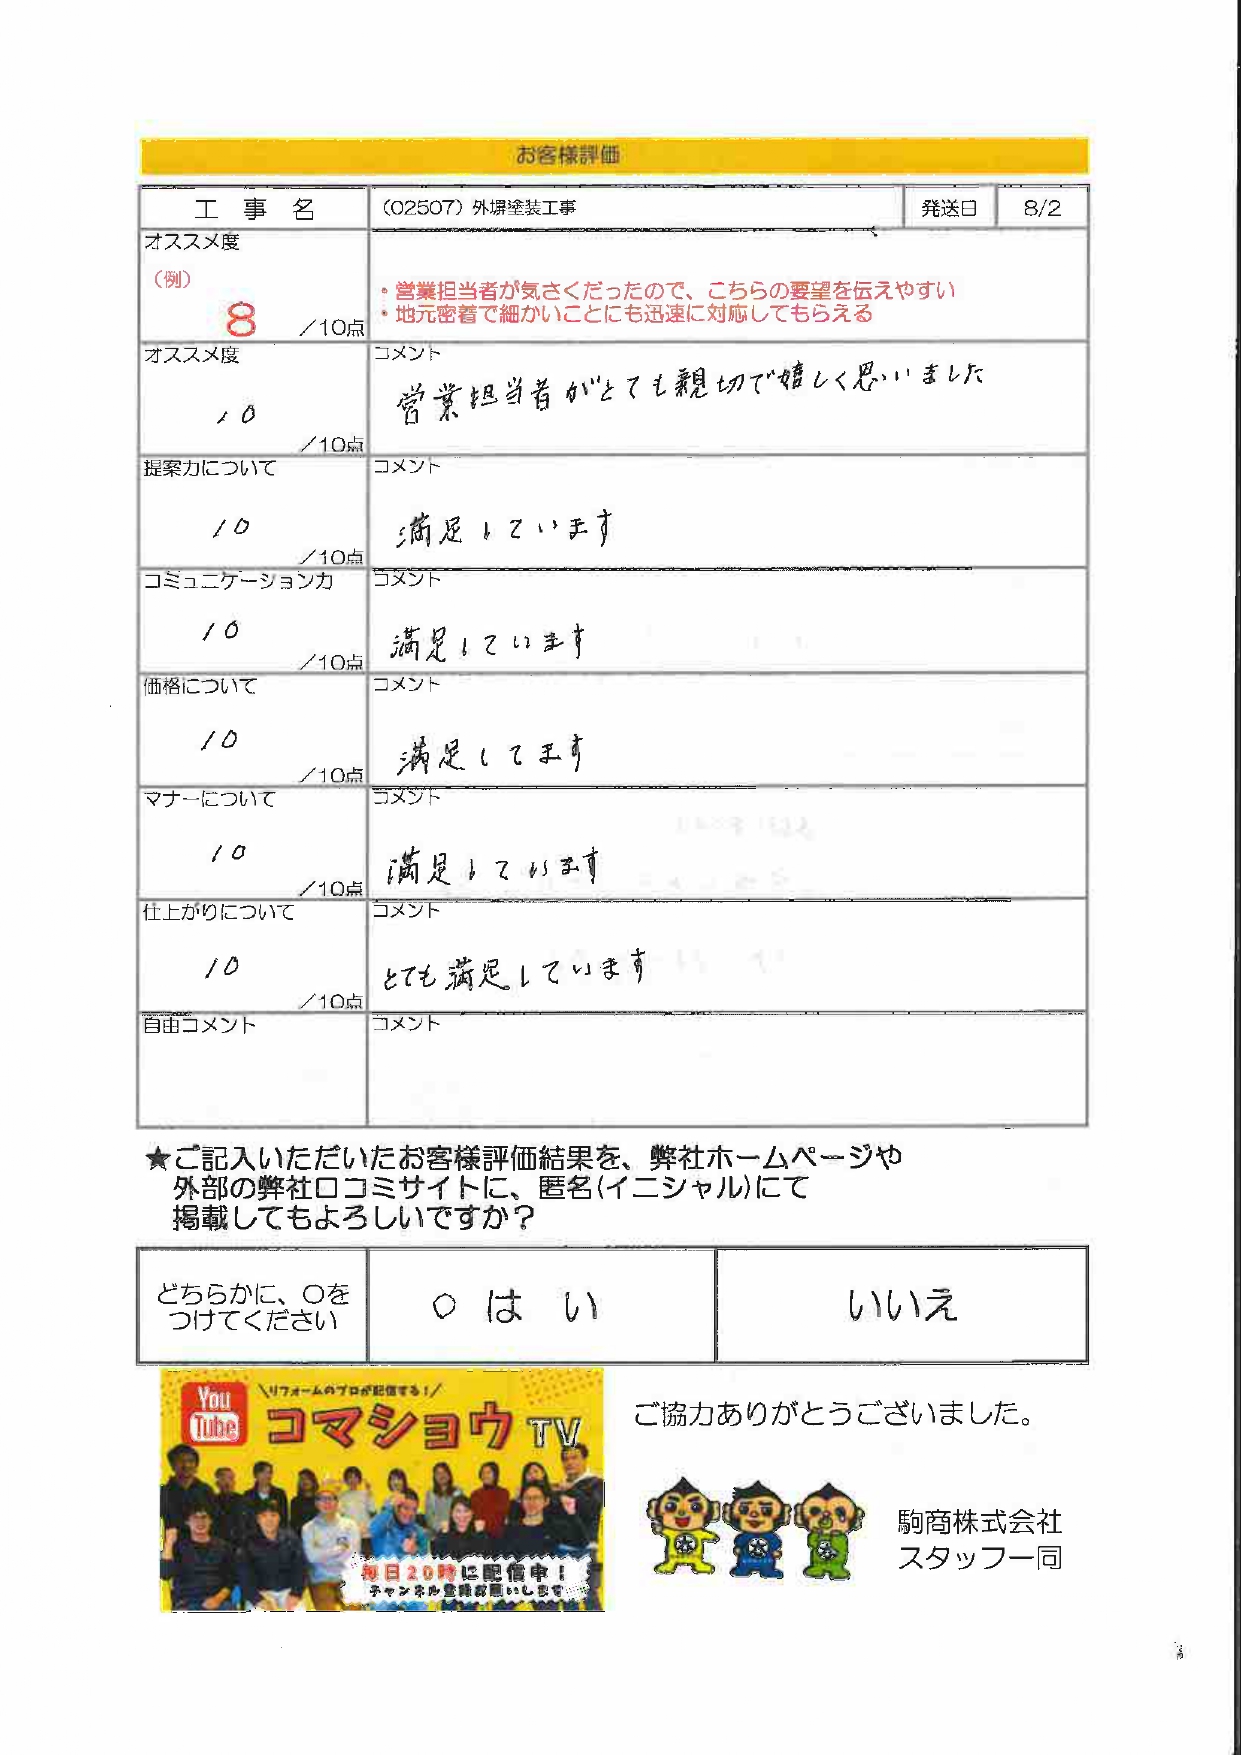 お客様評価
工 事 名 （02507）外塀塗装工事 発送日 8/2
オススメ度
（例）
8 ／10点
・営業担当者が気さくだったので、こちらの要望を伝えやすい
・地元密着で細かいことにも迅速に対応してもらえる
オススメ度 コメント
10 ／10点 営業担当者がとても親切で嬉しく思いました
提案力について コメント
10 ／10点 満足しています
コミュニケーション力 コメント
10 ／10点 満足しています
価格について コメント
10 ／10点 満足してます
マナーについて コメント
10 ／10点 満足しています
仕上がりについて コメント
10 ／10点 とても満足しています
自由コメント コメント
★ご記入いただいたお客様評価結果を、弊社ホームページや
外部の弊社口コミサイトに、匿名(イニシャル)にて
掲載してもよろしいですか？
どちらかに、○を
つけてください
○ はい いいえ
You Tube
＼リフォームのプロが配信する！／
コマショウTV
毎日20時に配信中！
チャンネル登録お願いします
ご協力ありがとうございました。
駒商株式会社
スタッフ一同